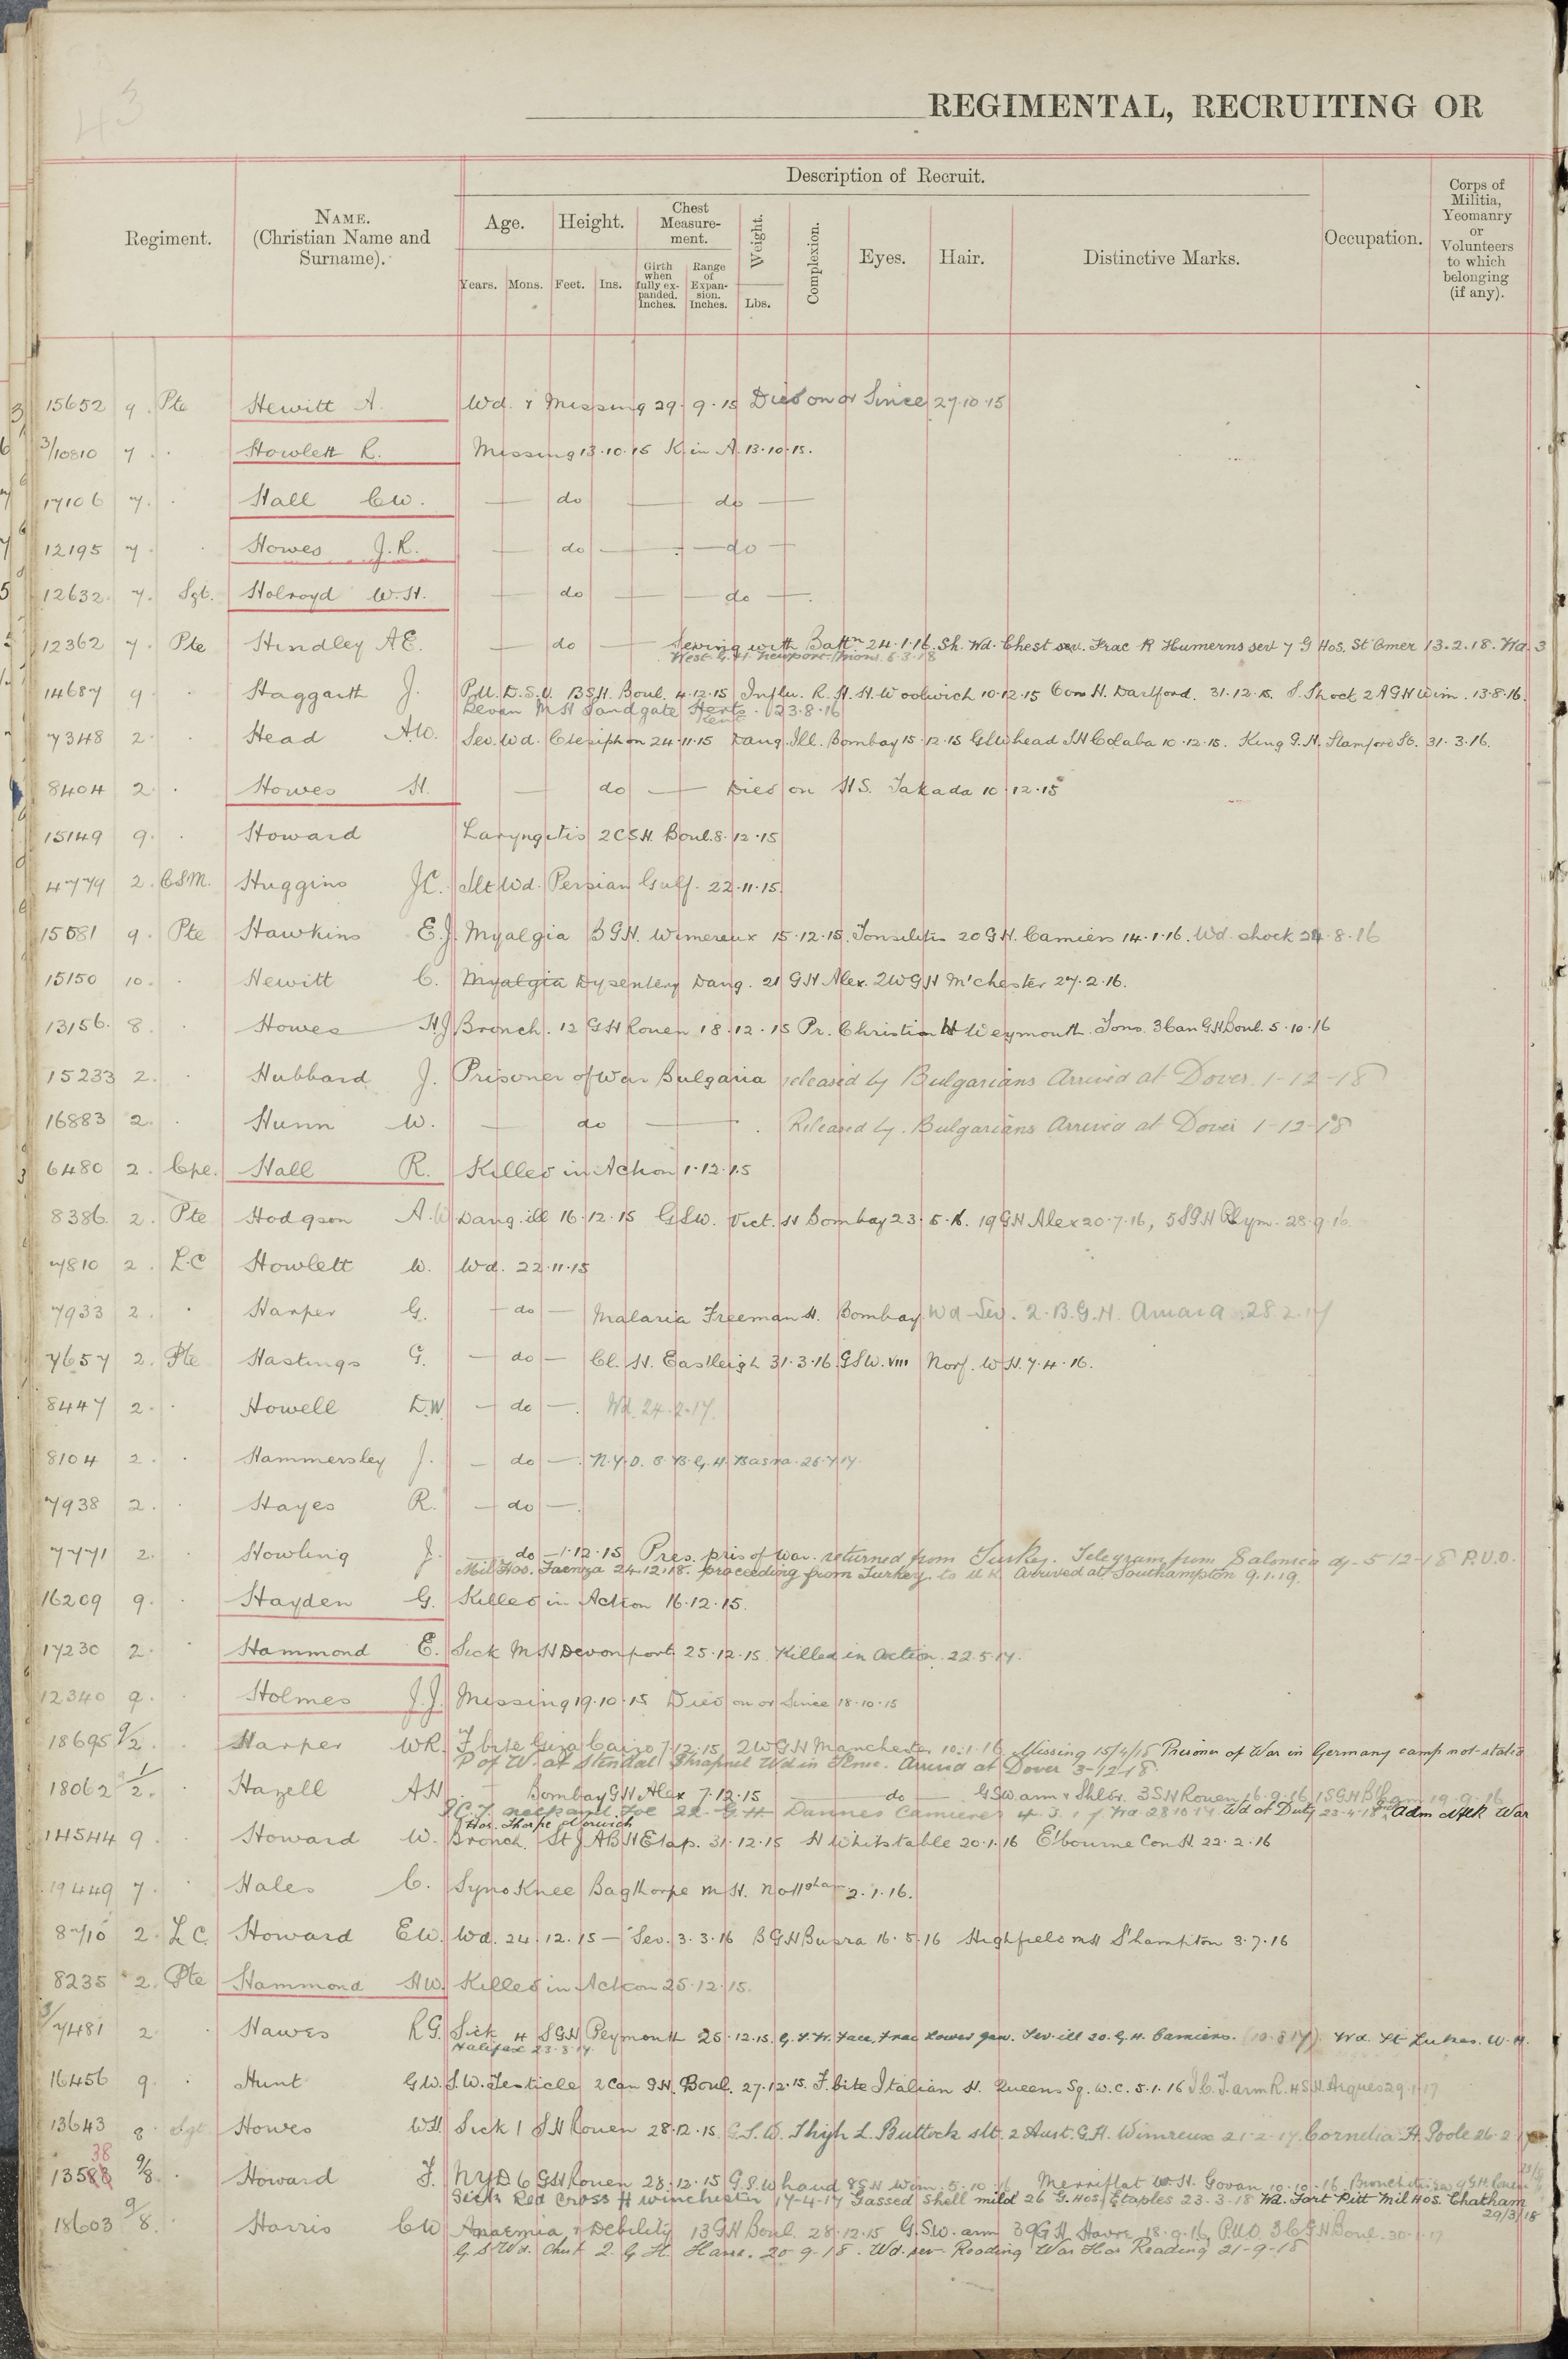 43
REGIMENTAL, RECRUITING OR
Regiment.
NAME.
(Christian Name and
Surname).
Description of Recruit.
Age.
Years. Mons.
Height.
Feet. Ins.
Chest
Measure-
ment.
Girth
when
fully ex-
panded.
Inches.
Range
of
Expan-
sion.
Inches.
Weight.
Lbs.
Complexion.
Eyes.
Hair.
Distinctive Marks.
Occupation.
Corps of
Militia,
Yeomanry
or
Volunteers
to which
belonging
(if any).
15652 9. Pte Hewitt A. Wd. & Missing 29.9.15 Died on or Since 27.10.15
3/10810 7 . . Howlett R. Missing 13.10.15 K. in A. 13.10.15.
17106 7. . Hall C.W. — do — do —
12195 7 . . Howes J.R. — do — — do —
12632 7. Sgt. Holroyd W.H. — do — — do —.
12362 7. Pte Hindley A.E. — do — Serving with Battn 24.1.16. Sh. Wd. Chest sev. Frac R Humerns sev 7 G Hos. St Omer 13.2.18. Wd. 3
West. G.H. Newport Mon. 6.3.18
14687 9. . Haggarth J. P.U. D.S.U. 13 S.H. Boul. 4.12.15 Influ. R.H.H. Woolwich 10.12.15 Con H. Dartford. 31.12.15. S. Shock 2 A G H Wim. 13.8.16.
Bevan M H Sandgate Herts. 23.8.16
Kent
7348 2. . Head A.W. Sev. Wd. Ctesiphon 24.11.15 Dang. Ill. Bombay 15.12.15 GSW head S H Colaba 10.12.15. King G.H. Stamford St. 31.3.16.
8404 2. . Howes H. — do — Died on H S. Takada 10.12.15
15149 9. . Howard Laryngitis 2 C S H. Boul. 8.12.15
4779 2. C.S.M. Huggins J.C. Slt Wd. Persian Gulf. 22.11.15.
15581 9. Pte Hawkins E.J. Myalgia B G H. Wimereux 15.12.15. Tonsilitis 20 G H. Camiers 14.1.16. Wd. shock 24.8.16
15150 10. . Hewitt C. Myalgia Dysentery Dang. 21 G H Alex. 2 W G H M'chester 27.2.16.
13156. 8. . Howes H.J Bronch. 12 G H Rouen 18.12.15 Pr. Christian H Weymouth. Tons. 3 Can G H Boul. 5.10.16
15233 2. . Hubbard J. Prisoner of War Bulgaria released by Bulgarians Arrived at Dover. 1-12-18
16883 2. . Hunn W. — do — . Released by. Bulgarians Arrived at Dover 1-12-18
6480 2. Cpl. Hall R. Killed in Action 1.12.15
8386. 2. Pte Hodgson A.W Dang. ill 16.12.15 G.S.W. Vict. H Bombay 23.5.16. 19 G H Alex 20.7.16, 5 S G H Plym. 28.9.16
7810 2. L.C Howlett W. Wd. 22.11.15
7933 2. . Harper G. — do — Malaria Freeman H. Bombay Wd Sev. 2. B.G.H. Amara. 28.2.17
7657 2. Pte Hastings G. — do — Cl. H. Eastleigh 31.3.16. GSW. VIII Norf. W H. 7.4.16.
8447 2. . Howell D.W. — do —. Wd. 24.2.17.
8104 2. . Hammersley J. — do —. N.Y.D. 3 B.G.H. Basra. 26.7.17.
7938 2. . Hayes R. — do —.
7771 2. . Howling J. — do — 1.12.15 Pres. pris of War. returned from Turkey. Telegram from Salonica dy- 5-12-18 P.U.O.
Mil Hos. Faenza 24.12.18. proceeding from Turkey. to U K. Arrived at Southampton 9.1.19.
16209 9. . Hayden G. Killed in Action 16.12.15.
17230 2. . Hammond E. Sick M H Devonport 25.12.15 Killed in Action. 22.5.17.
12340 9. . Holmes J.J. Missing 19.10.15 Died on or Since 18.10.15
18695 9/2. . Harper W.R. F. bite Giza Cairo 7.12.15 2 W G H Manchester 10.1.16 Missing 15/4/18 Prisoner of War in Germany camp not-stated
P of W. at Stendal Shrapnel Wd in Arm. Arrived at Dover 3-12-18
18062 1/2. . Hazell A.H. — Bombay G H Alex 7.12.15 — do — G.S.W arm & Shldr. 3 S H Rouen 6.9.16 1 S G H B'ham 19.9.16
I.C.T. neck and Toe 22. G H Dannes Camieres 4.3.17. Wd 28.10.17. Wd at Duty 23-4-18. Adm Nflk War
Hos. Thorpe Norwich
14544 9. . Howard W. Bronch. St J A B H Etap. 31.12.15 H Whitstable 20.1.16 E'bourne Con H. 22.2.16
19449 7. . Hales C. Syno Knee Bagthorpe M H. Nottgham 2.1.16.
8710 2. L C. Howard E.W. Wd. 24.12.15 — Sev. 3.3.16 B G H Busra 16.5.16 Highfield M H S'hampton 3.7.16
8235 2. Pte Hammond H.W. Killed in Action 25.12.15.
3/7481 2 . Hawes R.G. Sick 4 S G H Plymouth 26.12.15. G.S.W. Face, Frac Lower Jaw. Sev-ill 20. G.H. Camiers. (10.8.17). Wd. St Lukes. W.H.
Halifax 23.8.17.
16456 9. . Hunt G.W. S.W. Testicle 2 Can G H. Boul. 27.12.15. F. bite Italian H. Queens Sq. W.C. 5.1.16 I.C.T. arm R. 4 S H. Arques 29.1.17
13643 8. Sgt Howes W.H. Sick 1 S H Rouen 28.12.15. G.S.W. Thigh L. Buttock slt. 2 Aust. G.H. Wimreux 21-2-17. Cornelia H. Poole 26.2
38
13588 9/8. . Howard F. N Y D 6 G H Rouen 28.12.15 G.S.W hand 8 S H Wim. 5.10.16 Merriflat W.H. Govan 10.10.16
Sick Red Cross H Winchester 17-4-17 Gassed Shell mild 26 G. Hos Etaples 23-3-18 Wd. Fort Pitt Mil Hos. Chatham
29/3/18
18603 9/8. . Harris C.W Anaemia & Debility 13 G H Boul. 28.12.15 G.S.W. arm 39 G H Havre 18.9.16. P.U.O. 3 C G H Boul. 30.1.17
G.S Wd. Chest 2. G.H. Havre. 20-9-18. Wd. sev- Reading War Hos Reading 21-9-18